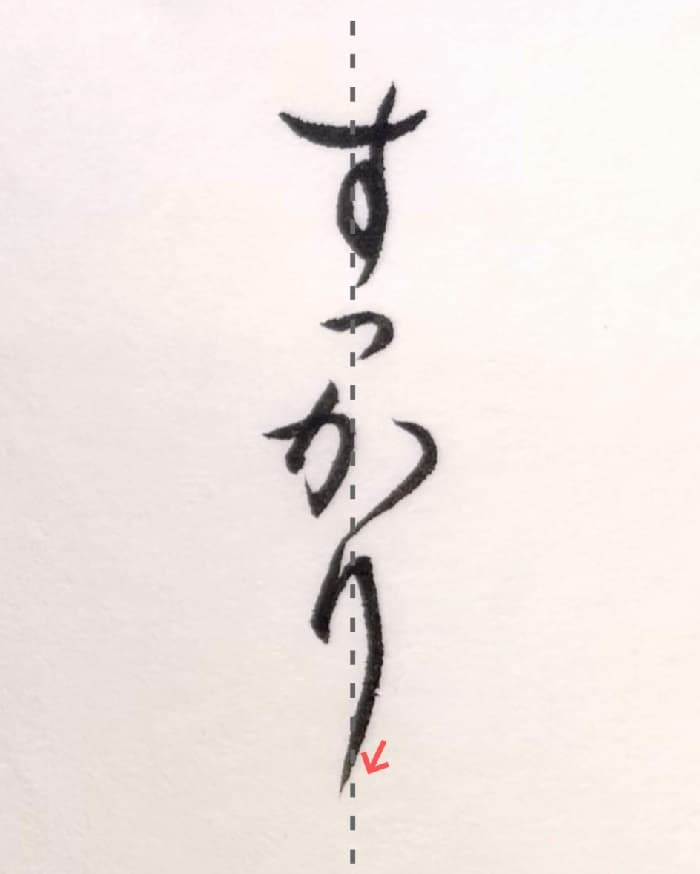 すっかり